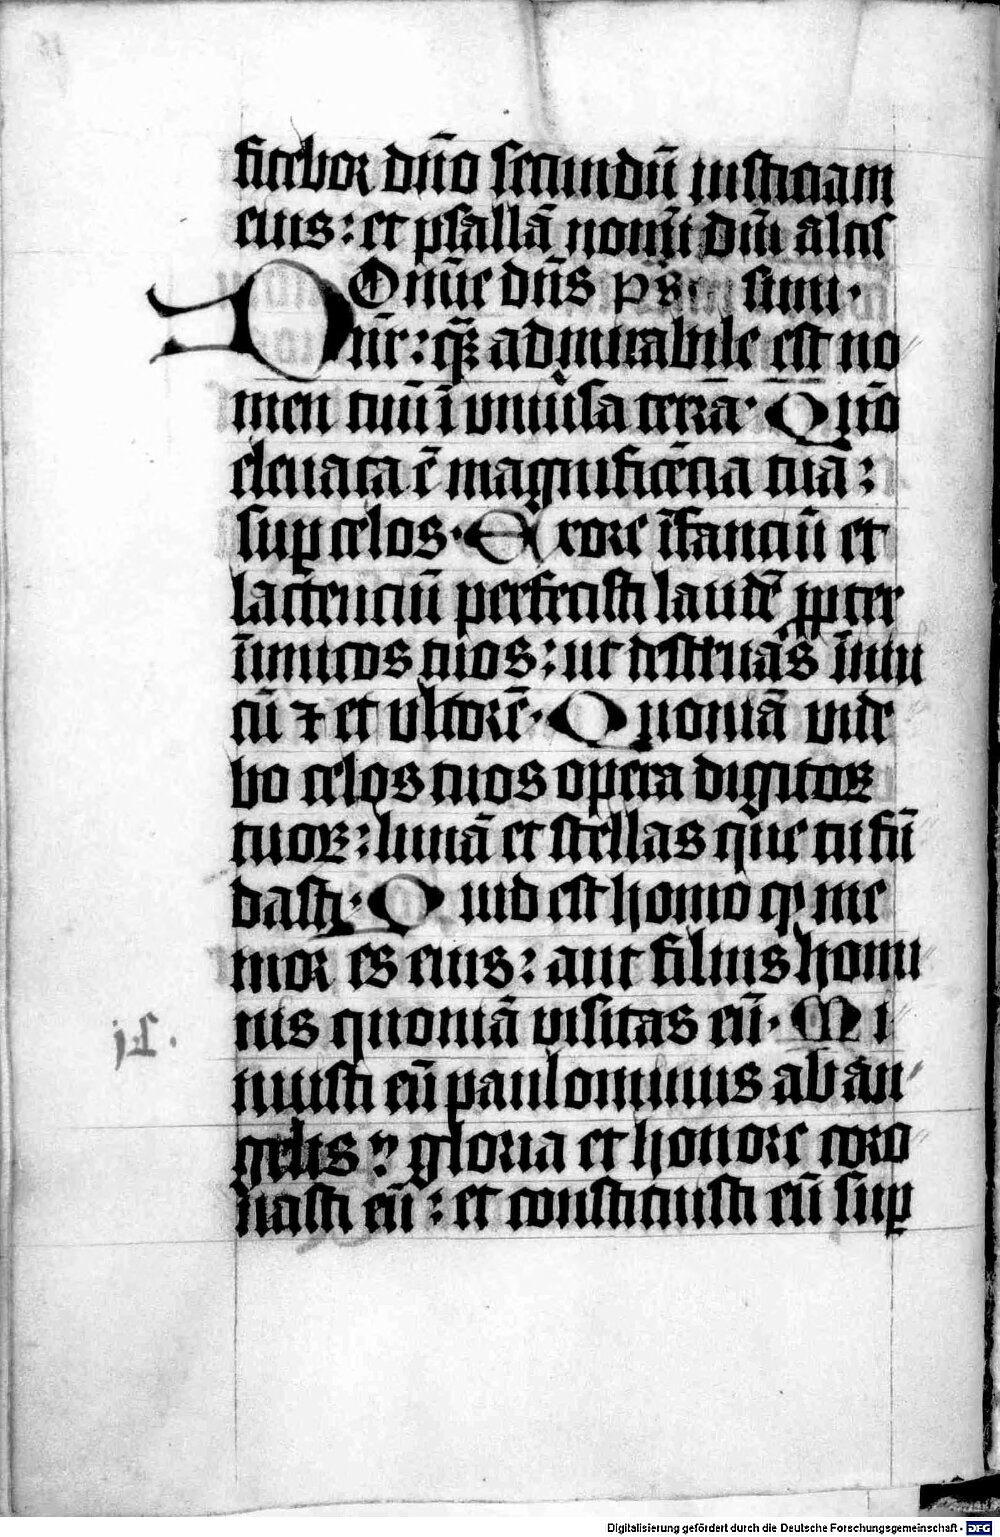 fitebor dño secundũ iusticiam
eius: et psallã nomĩ dñi altis
Omĩe dñs
D nr̃: qꝫ admirabile est no
men tuũ ĩ vniũsa terra. Qñõ
eleuata ẽ magnificẽtia tuã:
suꝑ celos. Ex ore ĩfanciũ et
lactenciũ perfecisti laudẽ ꝓpter
ĩimicos tuos: ut destruãs ĩimi
cũ ⁊ et vltorẽ. Quoniã vide
bo celos tuos opera digitoꝝ
tuoꝝ: lunã et stellas que tu fũ
dasti. Quid est homo ꝙ me
mor es eius: aut filius homi
nis quoniã visitas eũ. Mi
nuisti eũ paulominus ab an
gelis gloria et honore coro
nasti eũ: et constituisti eũ suꝑ
Digitalisierung gefördert durch die Deutsche Forschungsgemeinschaft - DFG